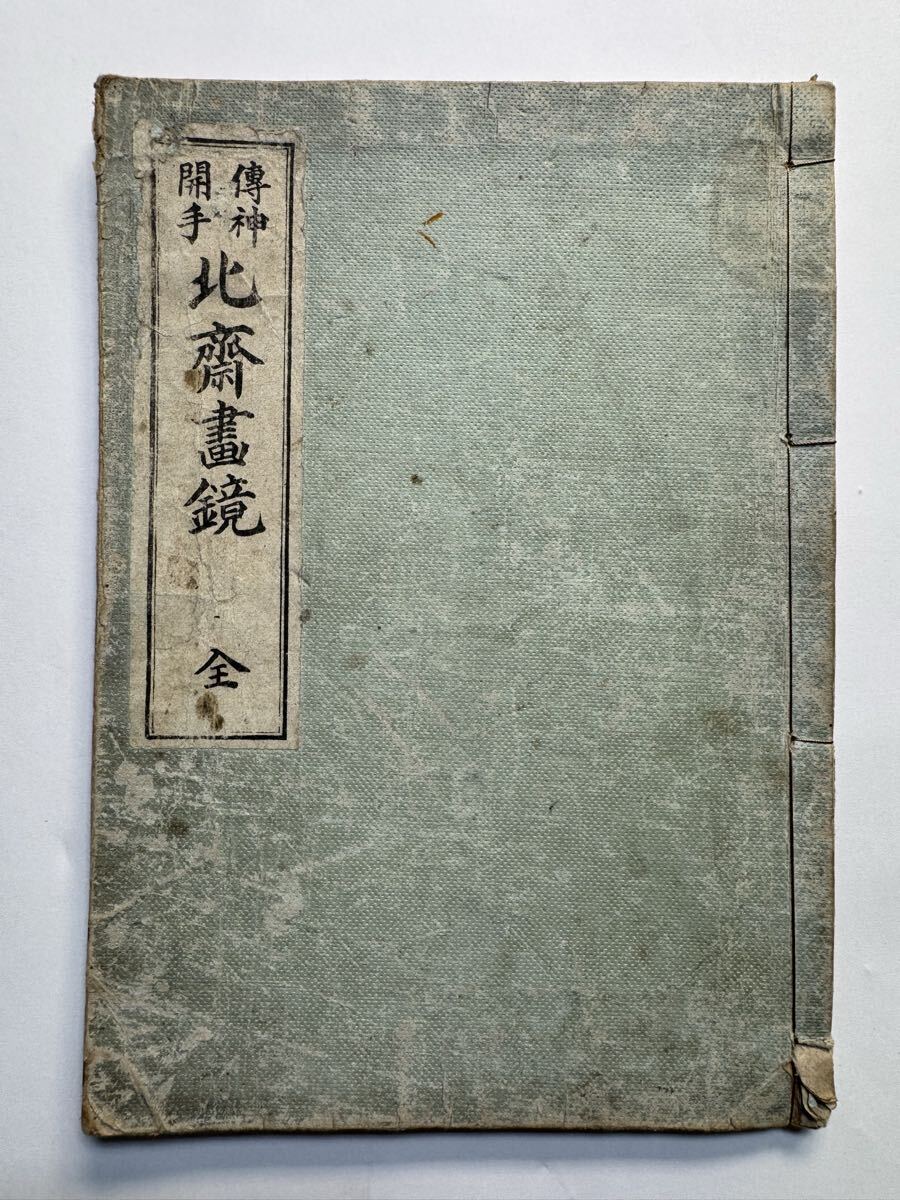 傳神
開手
北齋畫鏡
全